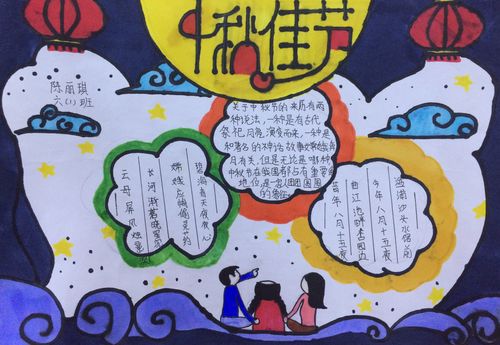 中秋佳节
陈丽琪
六(1)班
关于中秋节的来历有两
种说法,一种是有古代
祭祀月亮演变而来,一种是
和著名的神话故事嫦娥奔
月有关,但是无论是哪种
中秋节在我国都占有重要的
地位,是一家人团团圆圆
的象征
云母屏风烛影
长河渐落晓星
嫦娥应悔偷灵药
碧海青天夜夜心
昔年八月十五夜
曲江池畔杏园边
今年八月十五夜
湓浦沙头水馆前